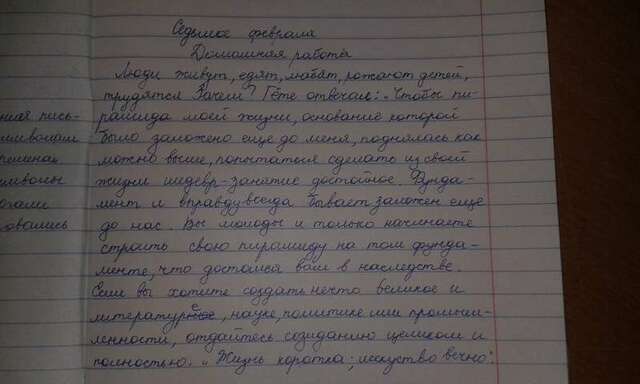 Седьмое февраля
Домашняя работа
Люди живут, едят, любят, рожают детей,
трудятся. Зачем? Гёте отвечал: „Чтобы пи-
рамида моей жизни, основание которой
было заложено еще до меня, поднялась как
можно выше, попытаться сделать из своей
жизни шедевр-занятие достойное. Фунда-
мент и вправду всегда бывает заложен еще
до нас. Вы молоды и только начинаете
строить свою пирамиду на том фунда-
менте, что достался вам в наследстве.
Если вы хотите создать нечто великое и
литературе, науке, политике или промыш-
ленности, отдайтесь созиданию целиком и
полностью. „Жизнь коротка; искуство вечно"